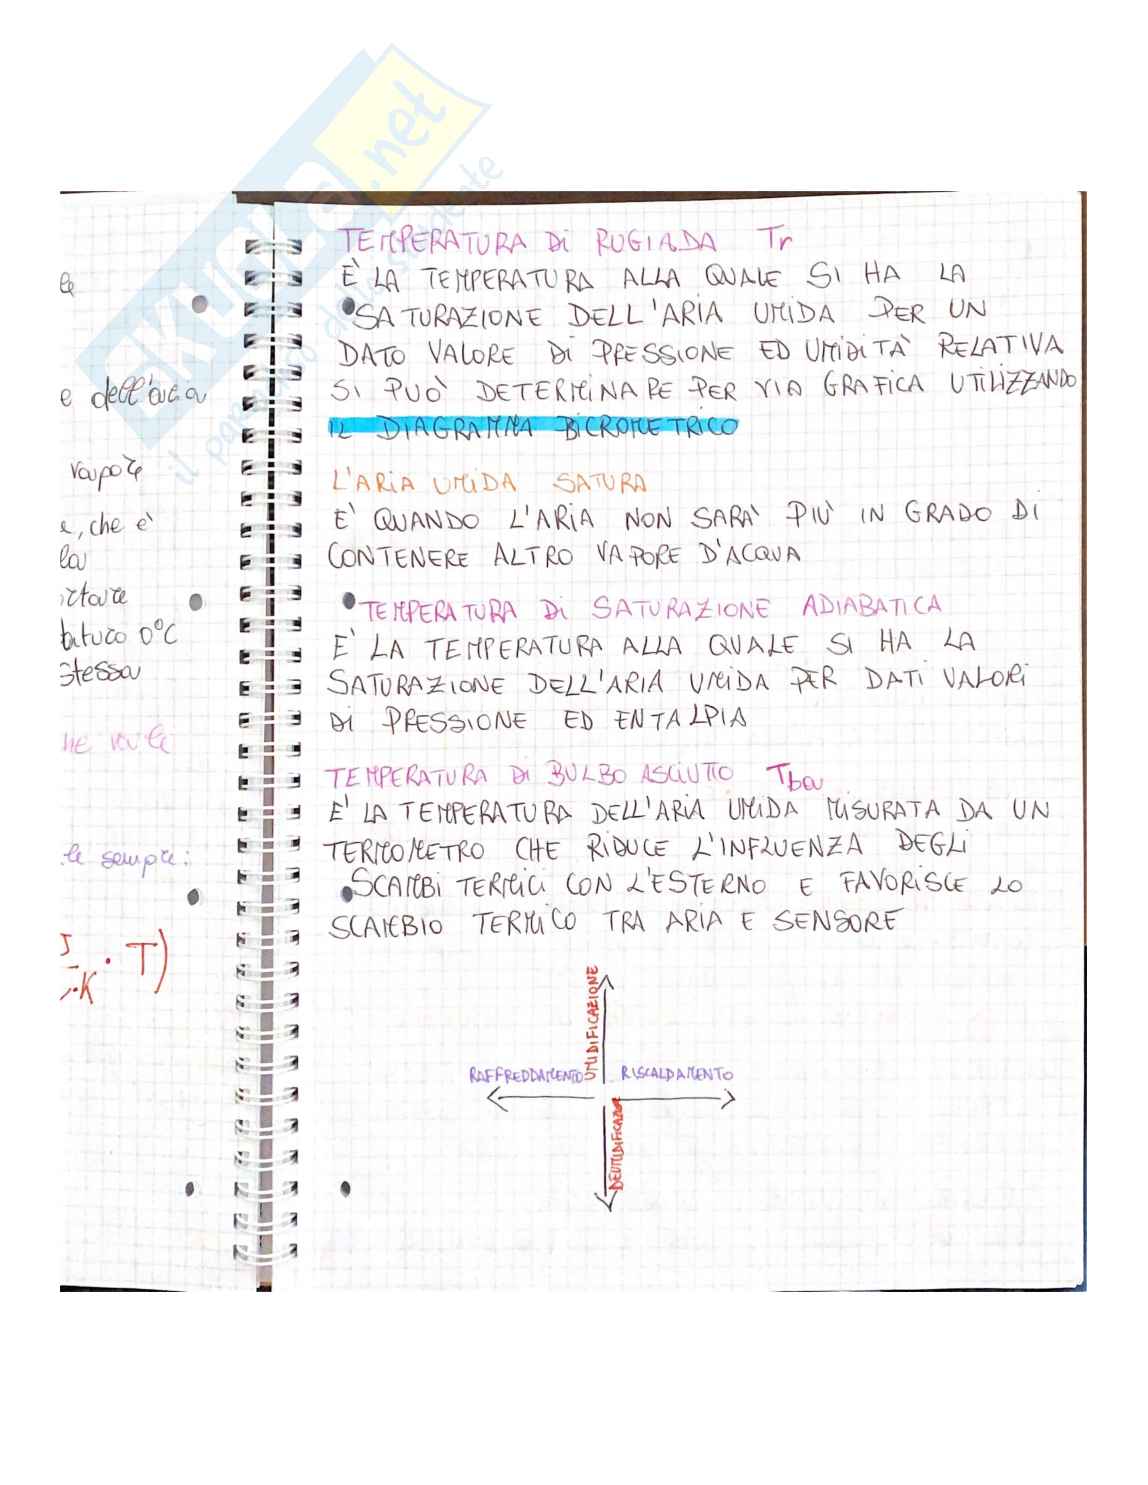 SKUOLA.net
il paradiso dello studente
le
e dell'aria
vapore
e, che è
la
ortare
0°C
stessa
he vale
le sempre:
J
K · T)
TEMPERATURA Di RUGIADA Tr
È LA TEMPERATURA ALLA QUALE SI HA LA
SATURAZIONE DELL'ARIA UMIDA PER UN
DATO VALORE Di PRESSIONE ED UMIDITÀ RELATIVA
SI PUÒ DETERMINARE PER VIA GRAFICA UTILIZZANDO
IL DIAGRAMMA BICROMETRICO
L'ARIA UMIDA SATURA
E' QUANDO L'ARIA NON SARA' PIÙ IN GRADO DI
CONTENERE ALTRO VAPORE D'ACQUA
TEMPERATURA Di SATURAZIONE ADIABATICA
E' LA TEMPERATURA ALLA QUALE SI HA LA
SATURAZIONE DELL'ARIA UMIDA PER DATI VALORI
Di PRESSIONE ED ENTALPIA
TEMPERATURA Di BULBO ASCIUTTO Tba
E' LA TEMPERATURA DELL'ARIA UMIDA MISURATA DA UN
TERMOMETRO CHE RIDUCE L'INFLUENZA DEGLI
SCAMBI TERMICI CON L'ESTERNO E FAVORISCE LO
SCAMBIO TERMICO TRA ARIA E SENSORE
UMIDIFICAZIONE
RAFFREDDAMENTO RISCALDAMENTO